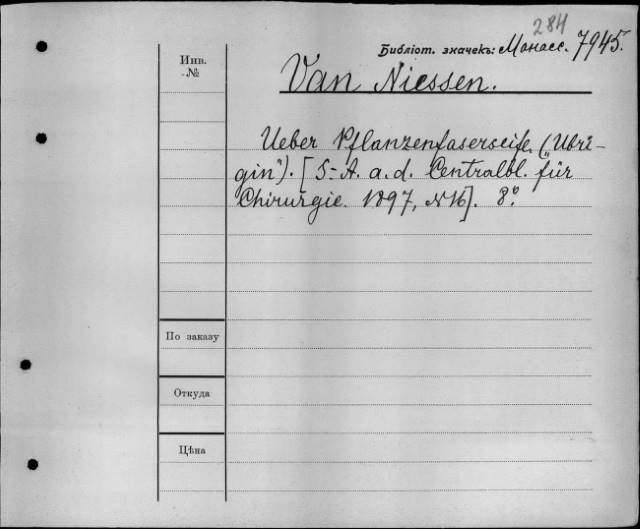 284
Библіот. значекъ: Монасс. 7945.
Инв.
№
Van Niessen.
Ueber Pflanzenfaserseife. („Ubri-
gin"). [S-A. a. d. Centralbl. für
Chirurgie. 1897, №16]. 8°.
По заказу
Откуда
Цѣна